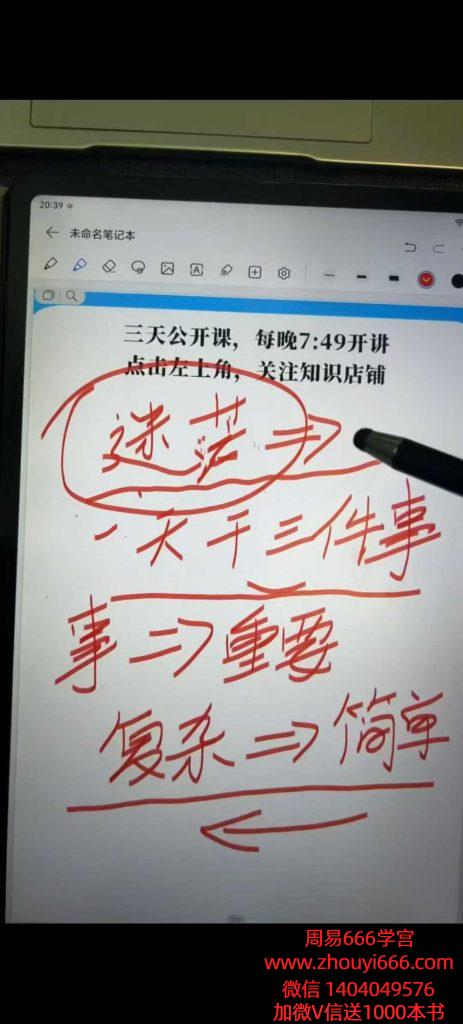 20:39
未命名笔记本
三天公开课，每晚7:49开讲
点击左上角，关注知识店铺
迷茫⇒
一天干三件事
事⇒重要
复杂⇒简单
←
周易666学宫
www.zhouyi666.com
微信 1404049576
加微V信送1000本书